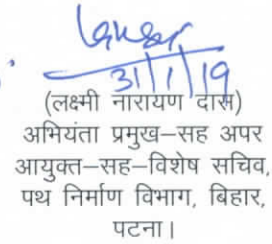 31/1/19
(लक्ष्मी नारायण दास)
अभियंता प्रमुख–सह अपर
आयुक्त–सह–विशेष सचिव,
पथ निर्माण विभाग, बिहार,
पटना।